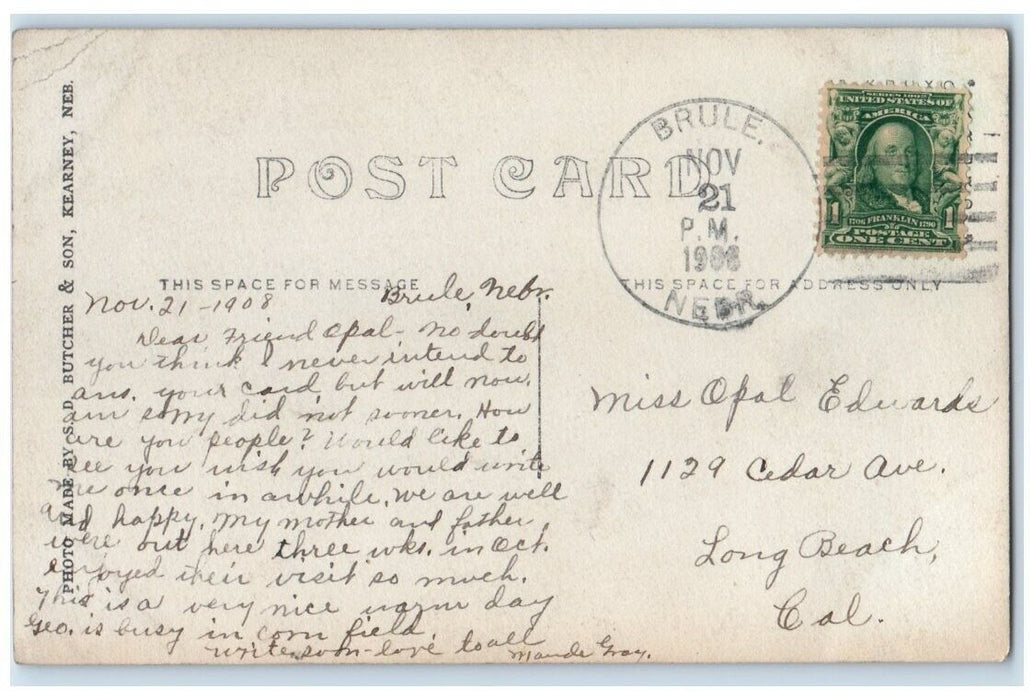 PHOTO MADE BY S. D. BUTCHER & SON, KEARNEY, NEB.
POST CARD
BRULE.
NOV
21
P.M.
1908
NEBR.
SERIES 1902
UNITED STATES OF
AMERICA
1706 FRANKLIN 1790
1 1
POSTAGE
ONE CENT
THIS SPACE FOR MESSAGE
THIS SPACE FOR ADDRESS ONLY
Nov. 21 - 1908 Brule, Nebr.
Dear Friend Opal - No doubt
you think I never intend to
ans. your card but will now.
am sorry did not sooner. How
are you people? Would like to
see you wish you would write
me once in awhile. We are well
and happy. My mother and father
were out here three wks. in Oct.
enjoyed their visit so much.
This is a very nice warm day
Geo. is busy in corn field.
write soon - love to all
Maude Gray.
Miss Opal Edwards
1129 Cedar Ave.
Long Beach,
Cal.